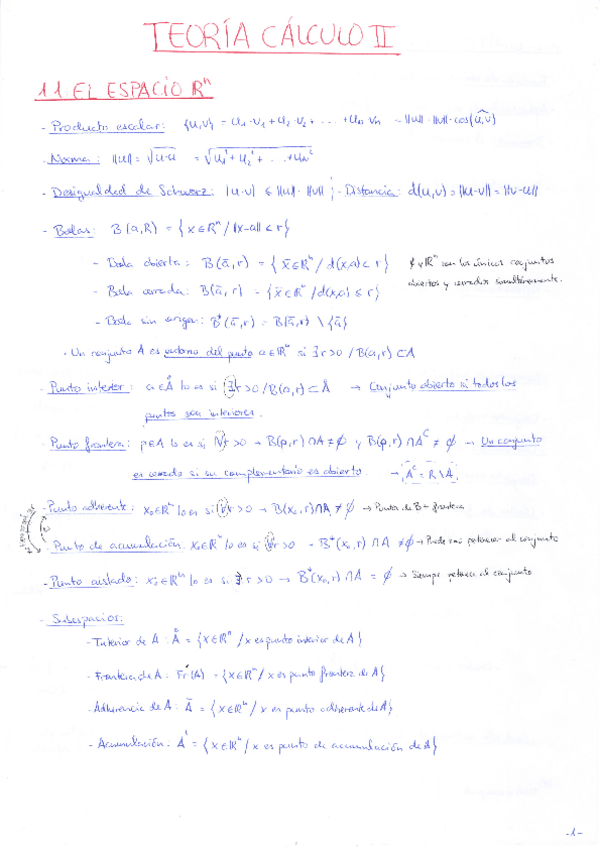 TEORÍA CÁLCULO II
1.1. EL ESPACIO Rⁿ
- Producto escalar: {u,v} = u₁·v₁ + u₂·v₂ + ... + uₙ·vₙ = ||u||·||v||·cos(u,v)
- Norma: ||u|| = √u·u = √u₁² + u₂² + ... + uₙ²
- Desigualdad de Schwarz: |u·v| ≤ ||u||·||v|| ; - Distancia: d(u,v) = ||u-v|| = ||v-u||
- Bolas: B(a,R) = {x∈Rⁿ / ||x-a|| < r}
- Bola abierta: B(ā,r) = {x̄∈Rⁿ / d(x,a) < r} ∅ y Rⁿ son los únicos conjuntos
- Bola cerrada: B(ā,r) = {x̄∈Rⁿ / d(x,a) ≤ r} abiertos y cerrados simultáneamente.
- Bola sin origen: B*(ā,r) = B(ā,r) \ {ā}
- Un conjunto A es entorno del punto a∈Rⁿ si ∃r>0 / B(a,r) ⊂ A
- Punto interior: a∈Å lo es si ∃r>0 / B(a,r) ⊂ Å → Conjunto abierto si todos los
puntos son interiores.
- Punto frontera: p∈A lo es si ∀r>0 → B(p,r)∩A≠∅ y B(p,r)∩Aᶜ≠∅ → Un conjunto
es cerrado si su complementario es abierto. → Aᶜ = R\A
- Punto adherente: x₀∈Rⁿ lo es si ∀r>0 → B(x₀,r)∩A≠∅ → Puntos de B + frontera
- Punto de acumulación: x₀∈Rⁿ lo es si ∀r>0 → B*(x₀,r)∩A≠∅ → Puede no pertenecer al conjunto
- Punto aislado: x₀∈Rⁿ lo es si ∃r>0 → B*(x₀,r)∩A = ∅ → Siempre pertenece al conjunto
- Subespacios:
- Interior de A: Å = {x∈Rⁿ / x es punto interior de A}
- Frontera de A: Fr(A) = {x∈Rⁿ / x es punto frontera de A}
- Adherencia de A: Ā = {x∈Rⁿ / x es punto adherente de A}
- Acumulación: A' = {x∈Rⁿ / x es punto de acumulación de A}
-1-